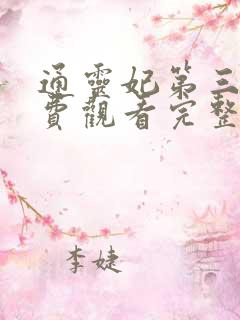 通靈妃第三
費觀看完整
李婕